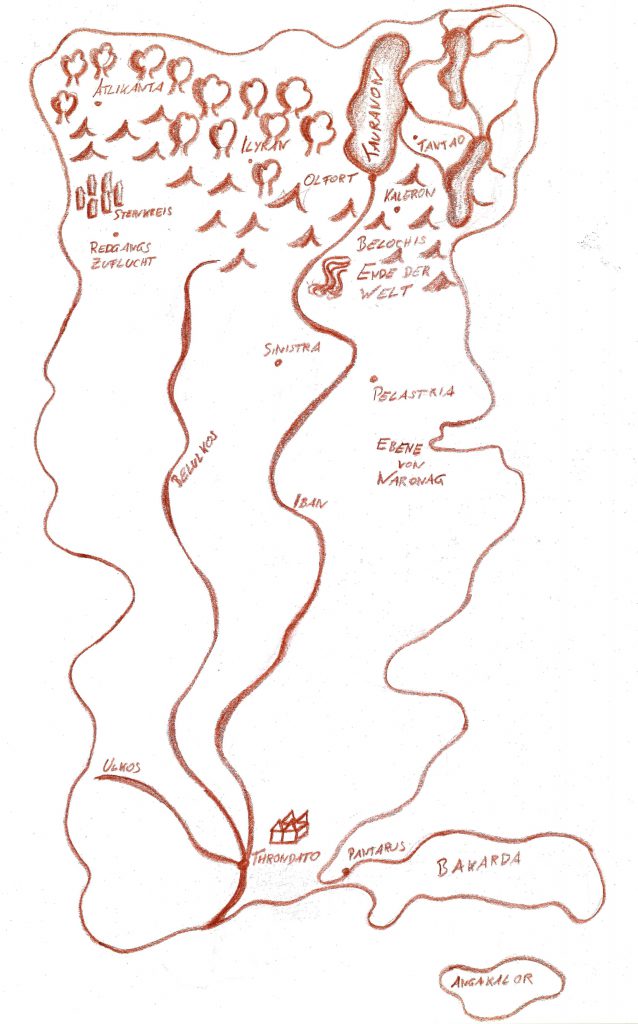 ATLIKANTA
TAURAVON
ILYRAN
TANTAO
OLFORT
KALERON
STEINKREIS
REDGANGS
ZUFLUCHT
BELOCHIS
ENDE DER
WELT
SINISTRA
PELASTRIA
BELULKOS
EBENE
VON
WARONAG
IBAN
ULKOS
THRONDATO
PANTARUS
BAKARDA
ANGAKALOR